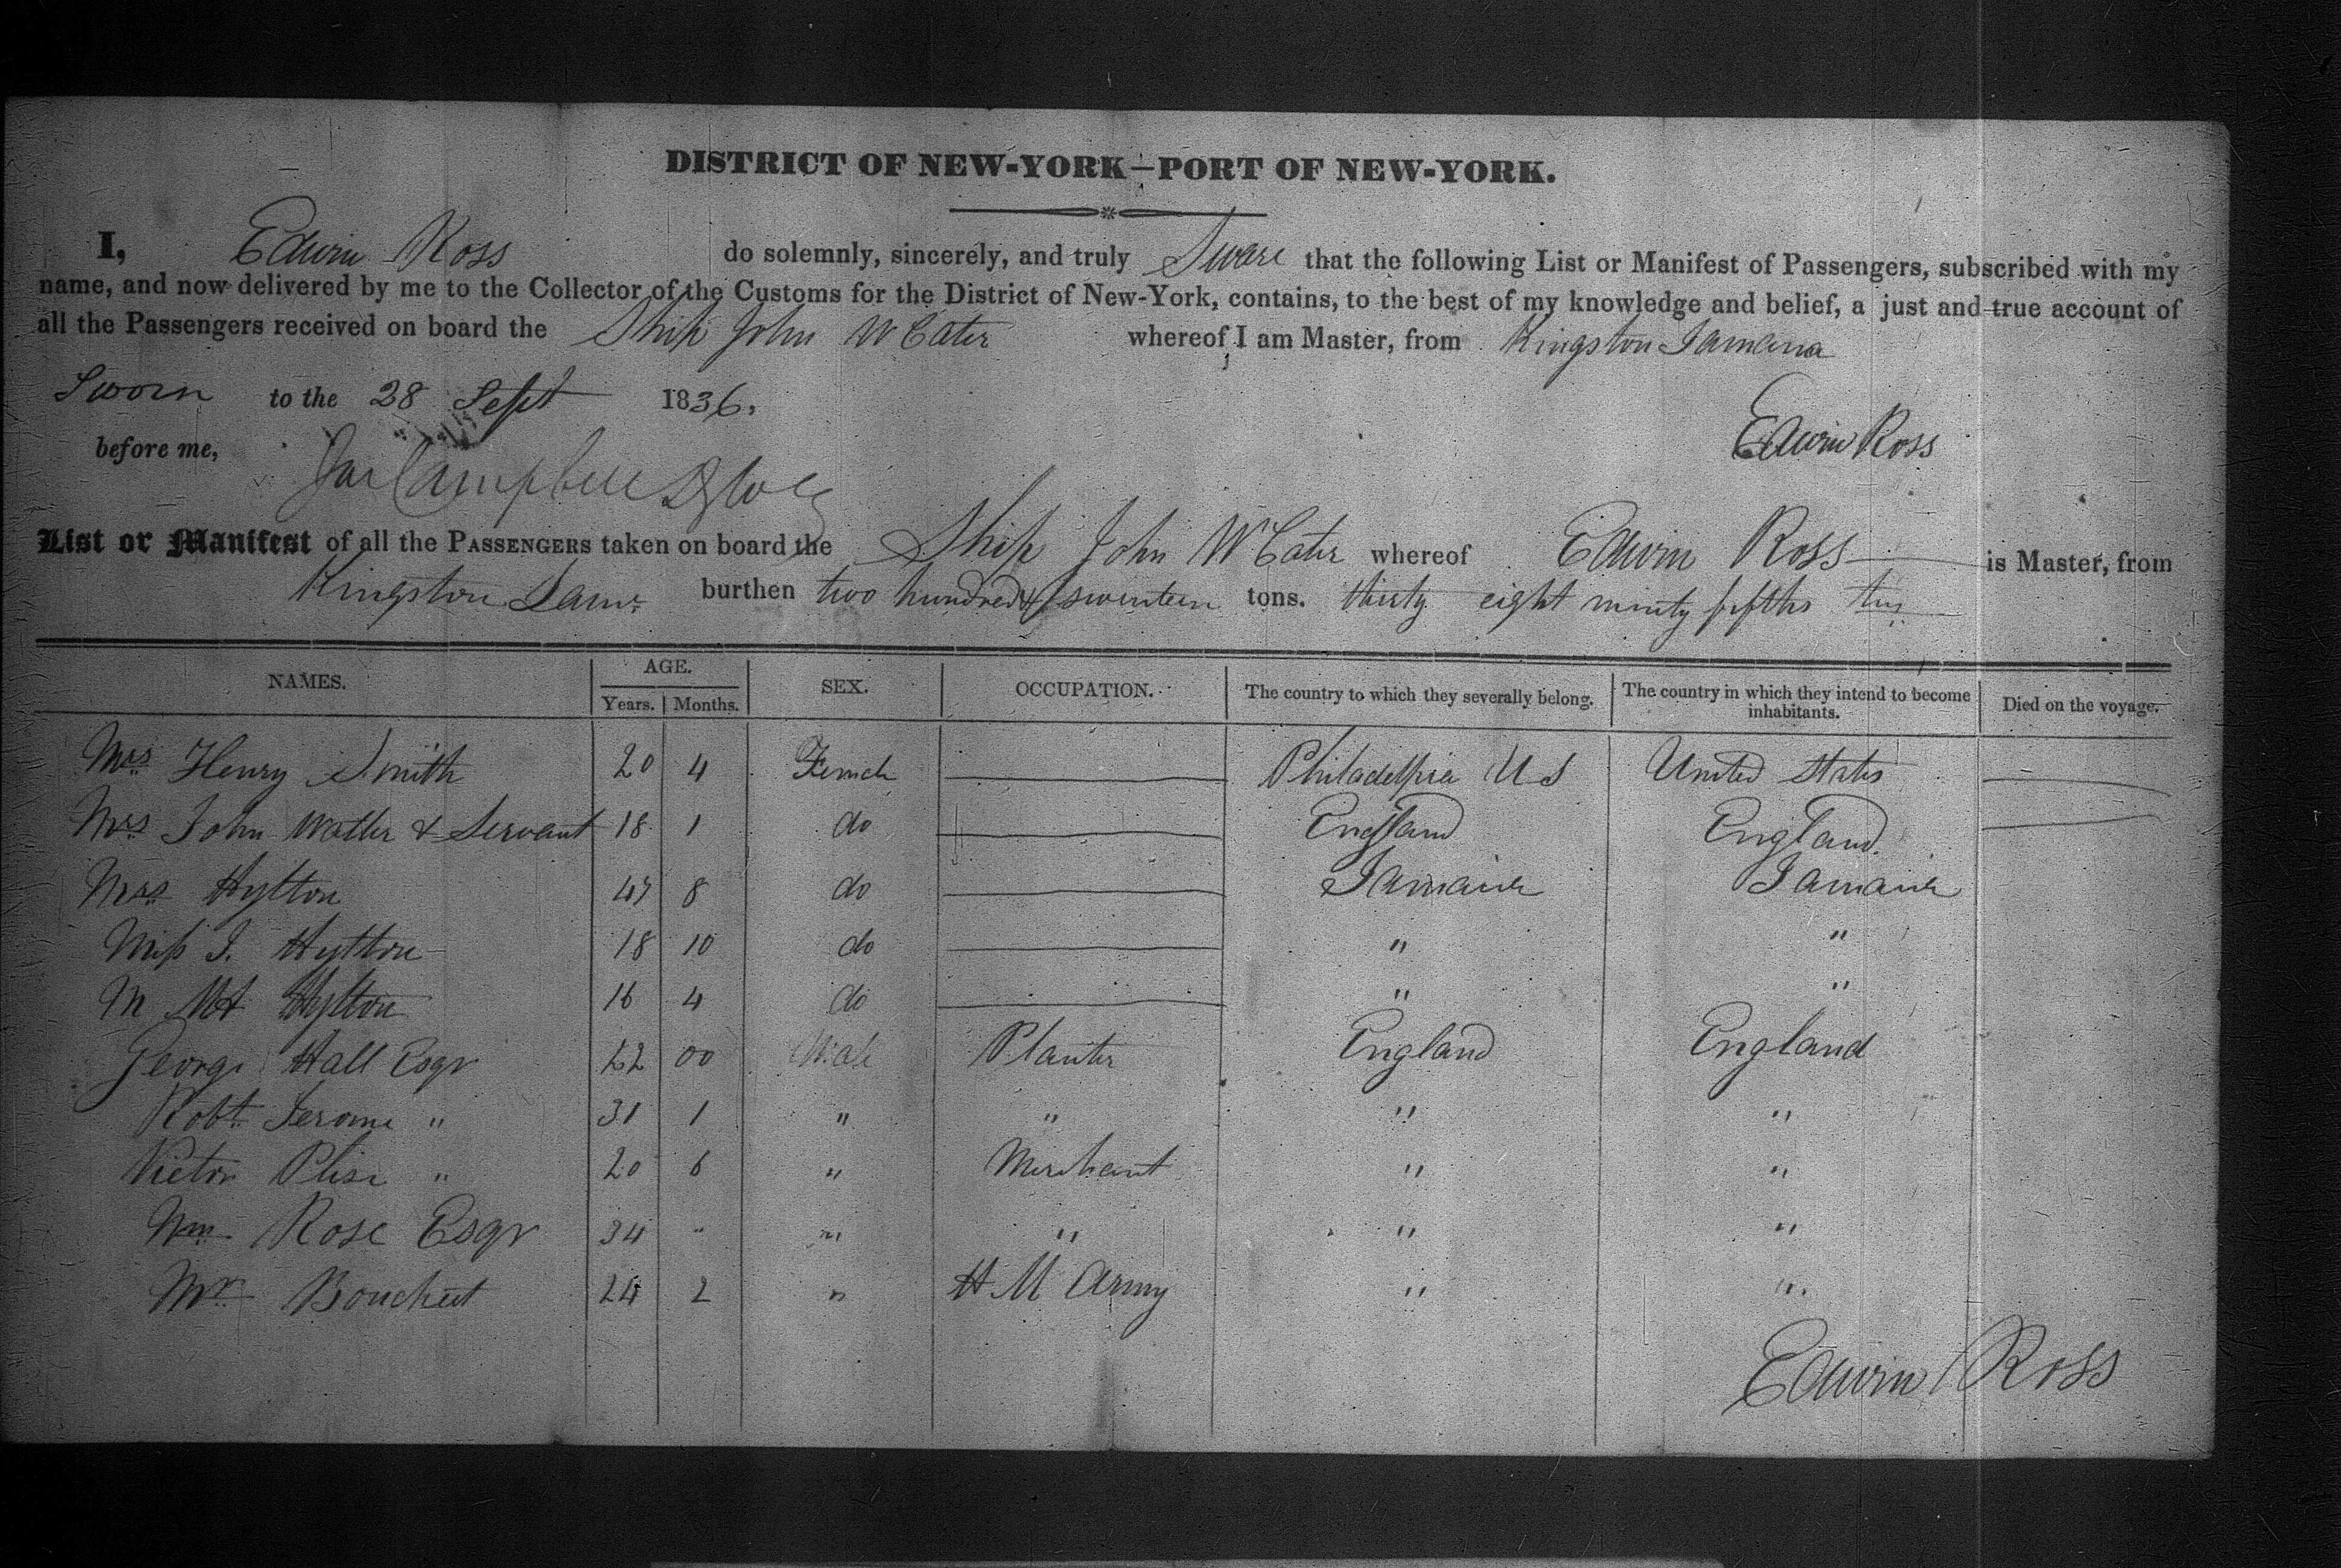 DISTRICT OF NEW-YORK—PORT OF NEW-YORK.
I, Edwin Ross do solemnly, sincerely, and truly Sware that the following List or Manifest of Passengers, subscribed with my
name, and now delivered by me to the Collector of the Customs for the District of New-York, contains, to the best of my knowledge and belief, a just and true account of
all the Passengers received on board the Ship John W Cater whereof I am Master, from Kingston Jamaica
Sworn to the 28 Sept 1836,
Edwin Ross
before me, Jas Campbell
List or Manifest of all the PASSENGERS taken on board the Ship John W Cater whereof Edwin Ross is Master, from
Kingston Jam. burthen two hundred & seventeen tons. thirty eight ninty fifths
NAMES. AGE. SEX. OCCUPATION. The country to which they severally belong. The country in which they intend to become inhabitants. Died on the voyage.
Years. Months.
Mrs Henry Smith 20 4 Female Philadelphia US United States
Mrs John Watler & Servant 18 1 do England England
Mrs Hylton 47 8 do Jamaica Jamaica
Miss J. Hylton 18 10 do " "
M MA Hylton 16 4 do " "
George Hall Esqr 22 00 Male Planter England England
Robt Jerome " 31 1 " " " "
Victor Plise " 20 6 " Merchant " "
Wm Rose Esqr 34 " " " " "
Mr Bouchett 24 2 " H M Army " "
Edwin Ross